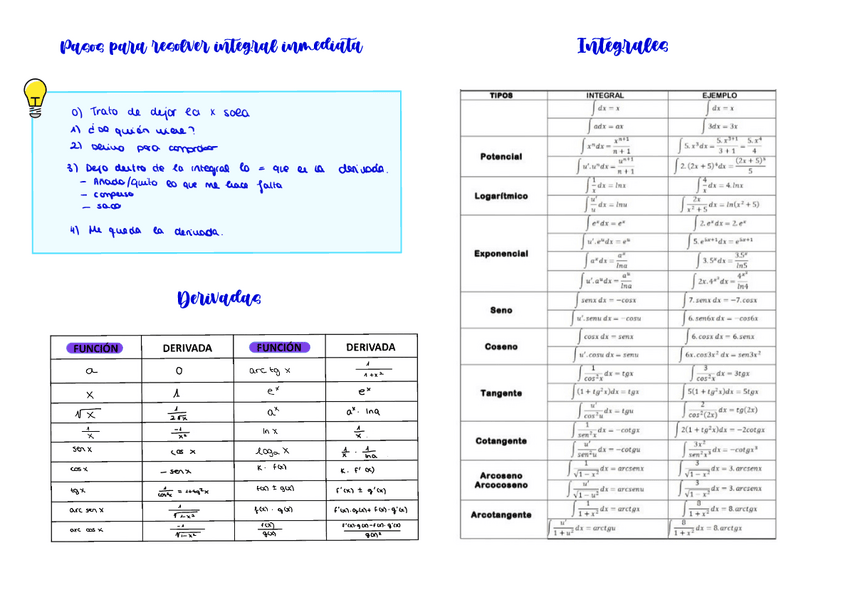 Pasos para resolver integral inmediata
0) Trato de dejar la x sola
1) ¿De quién viene?
2) Derivo para comprobar
3) Dejo dentro de la integral lo = que en la derivada.
– Añado/Quito lo que me hace falta
– compenso
– saco
4) Me queda la derivada.
Derivadas
FUNCIÓN DERIVADA FUNCIÓN DERIVADA
a 0 arc tg x 1/(1+x²)
x 1 eˣ eˣ
√x 1/(2√x) aˣ aˣ · lna
1/x -1/x² ln x 1/x
sen x cos x logₐ x 1/x · 1/lna
cos x – sen x K · f(x) K · f'(x)
tg x 1/cos²x = 1+tg²x f(x) ± g(x) f'(x) ± g'(x)
arc sen x 1/√(1-x²) f(x) · g(x) f'(x)·g(x)+f(x)·g'(x)
arc cos x -1/√(1-x²) f(x)/g(x) (f'(x)·g(x)-f(x)·g'(x))/g(x)²
Integrales
TIPOS INTEGRAL EJEMPLO
∫dx = x ∫dx = x
∫adx = ax ∫3dx = 3x
Potencial
∫xⁿdx = xⁿ⁺¹/(n+1) ∫5.x³dx = 5.x³⁺¹/(3+1) = 5.x⁴/4
∫u'.uⁿdx = uⁿ⁺¹/(n+1) ∫2.(2x+5)⁴dx = (2x+5)⁵/5
Logarítmico
∫1/x dx = lnx ∫4/x dx = 4.lnx
∫u'/u dx = lnu ∫2x/(x²+5) dx = ln(x²+5)
Exponencial
∫eˣdx = eˣ ∫2.eˣdx = 2.eˣ
∫u'.eᵘdx = eᵘ
∫aˣdx = aˣ/lna ∫3.5ˣdx = 3.5ˣ/ln5
∫u'.aᵘdx = aᵘ/lna
Seno
∫senx dx = −cosx ∫7.senx dx = −7.cosx
∫u'.senu dx = −cosu ∫6.sen6x dx = −cos6x
Coseno
∫cosx dx = senx ∫6.cosx dx = 6.senx
∫u'.cosu dx = senu ∫6x.cos3x² dx = sen3x²
Tangente
∫1/cos²x dx = tgx ∫3/cos²x dx = 3tgx
∫(1+tg²x)dx = tgx ∫5(1+tg²x)dx = 5tgx
∫u'/cos²u dx = tgu ∫2/cos²(2x) dx = tg(2x)
Cotangente
∫1/sen²x dx = −cotgx ∫2(1+tg²x)dx = −2cotgx
∫u'/sen²u dx = −cotgu ∫3x²/sen²x³ dx = −cotgx³
Arcoseno
Arcocoseno
∫1/√(1−x²) dx = arcsenx ∫3/√(1−x²) dx = 3.arcsenx
∫u'/√(1−u²) dx = arcsenu ∫3/√(1−x²) dx = 3.arcsenx
Arcotangente
∫1/(1+x²) dx = arctgx ∫8/(1+x²) dx = 8.arctgx
∫u'/(1+u²) dx = arctgu ∫8/(1+x²) dx = 8.arctgx